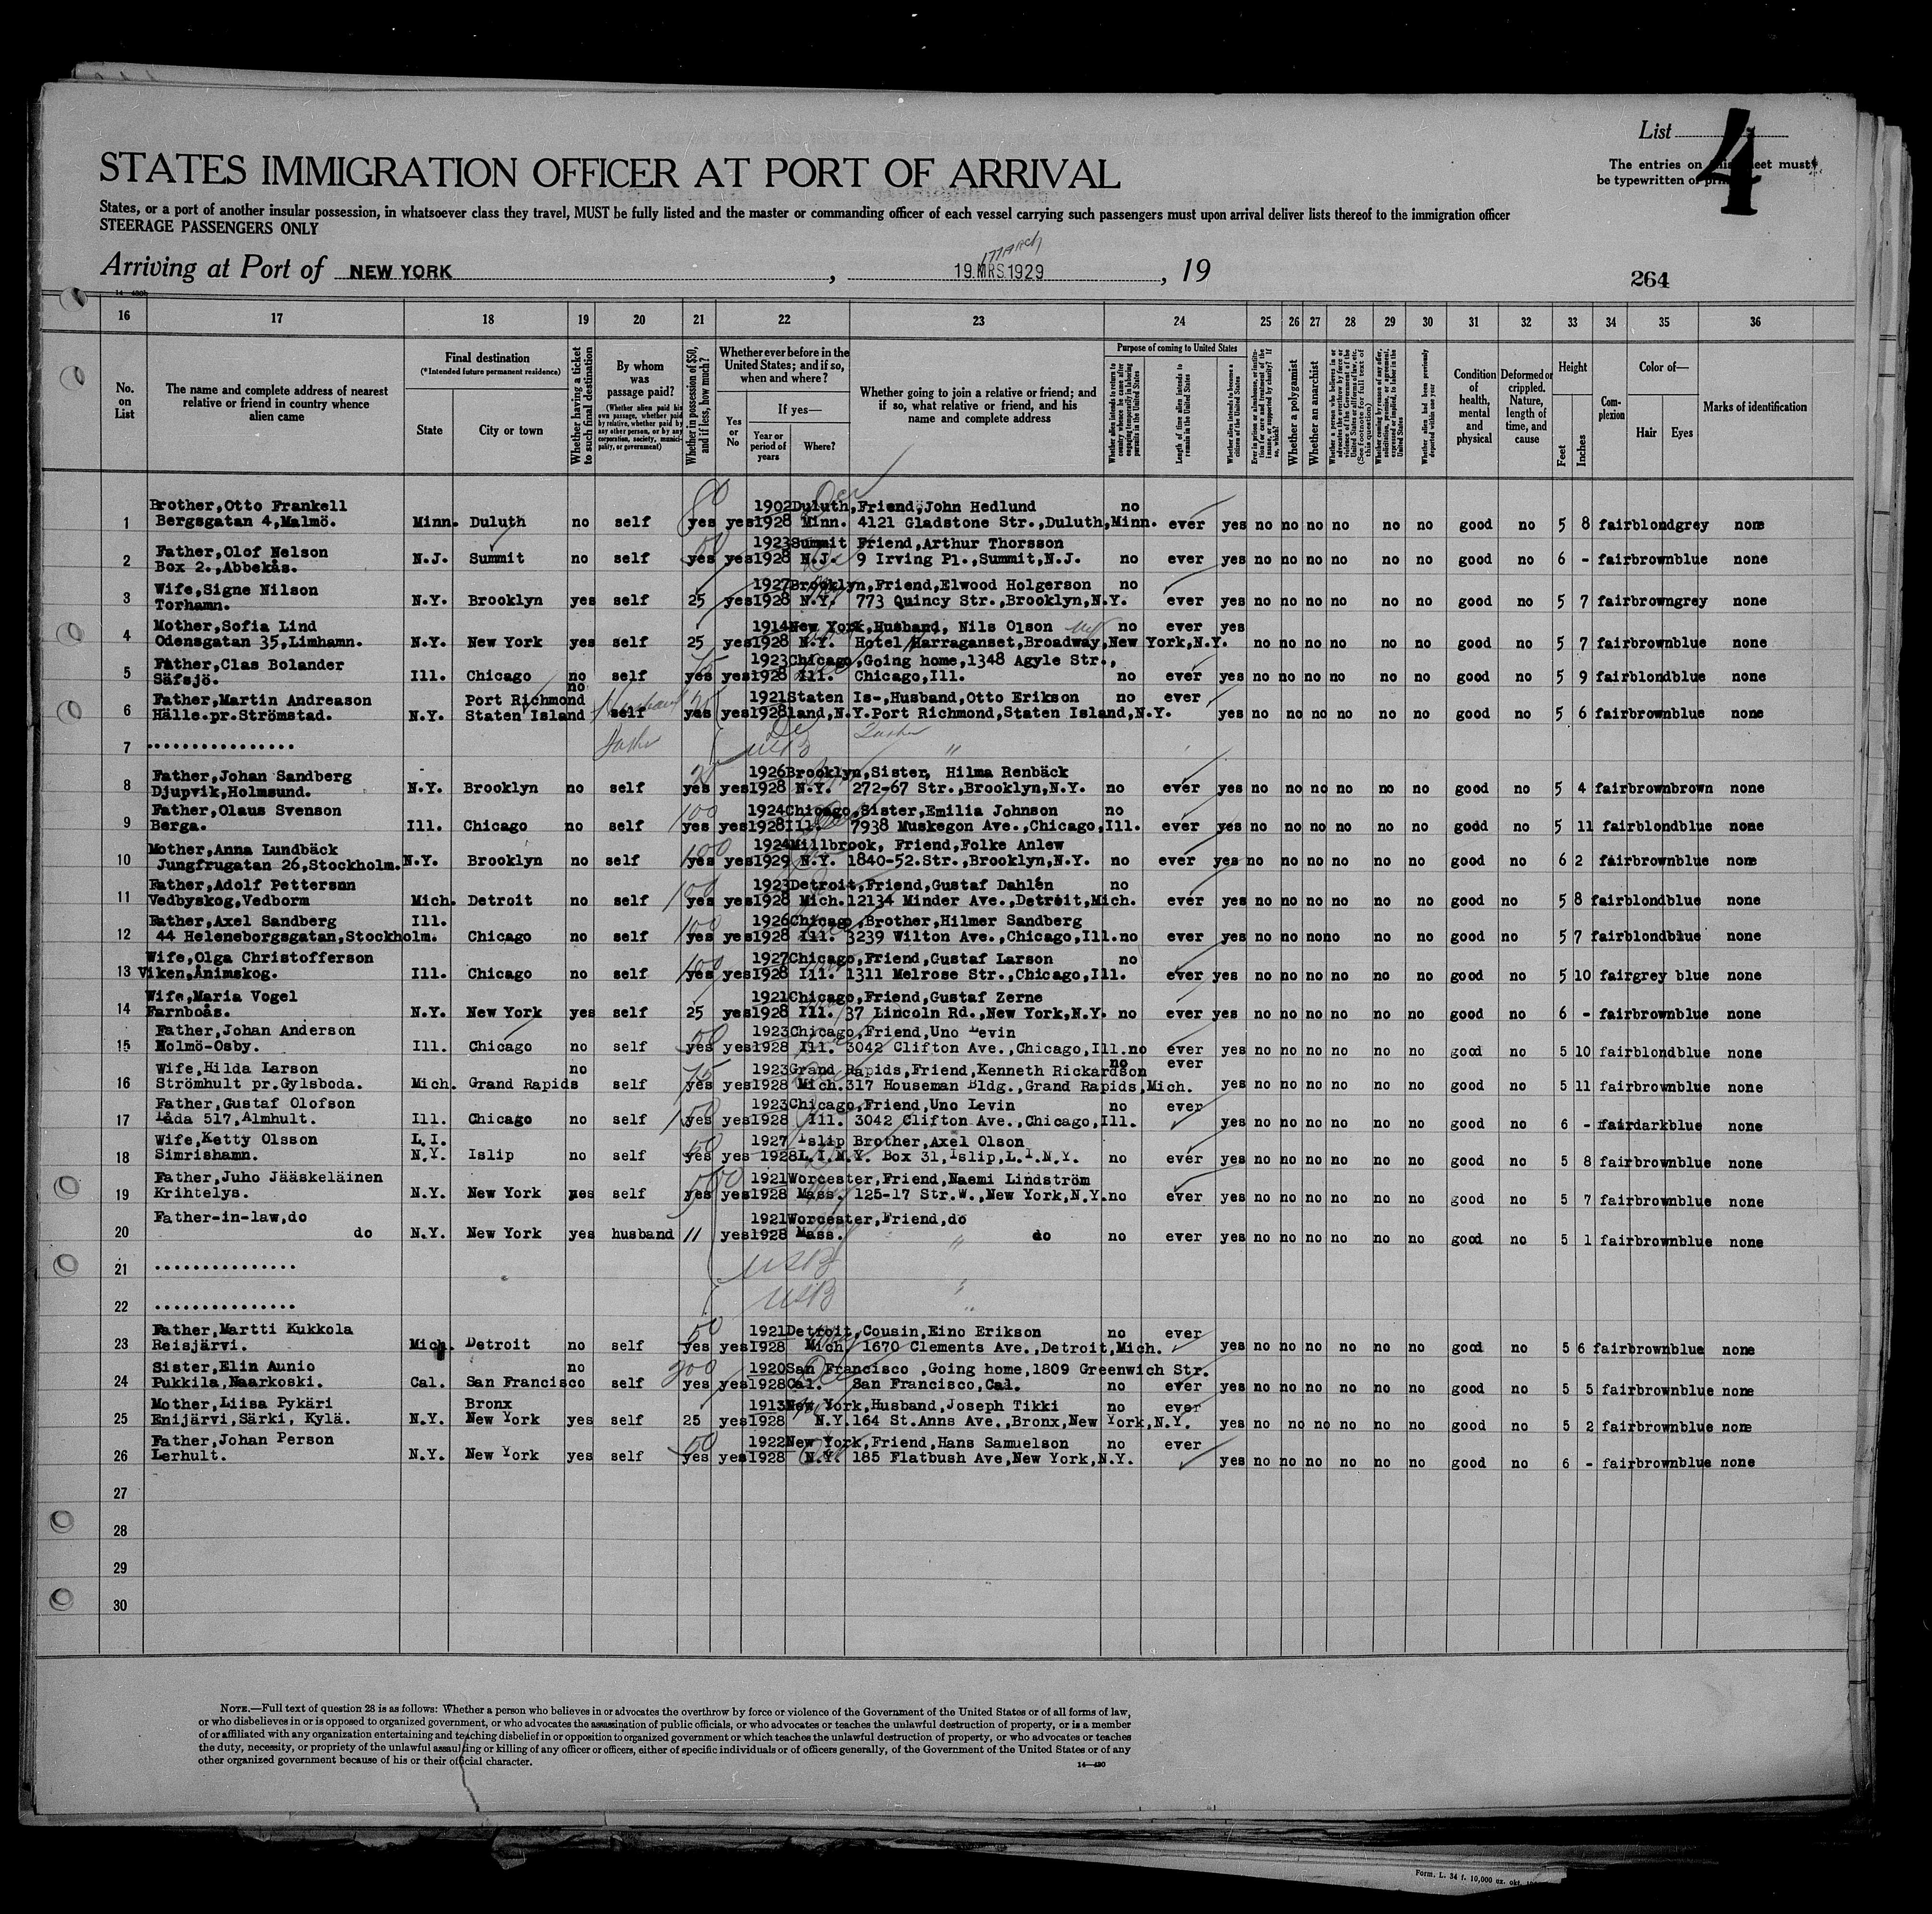 List 4
STATES IMMIGRATION OFFICER AT PORT OF ARRIVAL
The entries on this sheet must
be typewritten or
States, or a port of another insular possession, in whatsoever class they travel, MUST be fully listed and the master or commanding officer of each vessel carrying such passengers must upon arrival deliver lists thereof to the immigration officer
STEERAGE PASSENGERS ONLY
March
Arriving at Port of NEW YORK, 19.MRS.1929, 19
264
16 17 18 19 20 21 22 23 24 25 26 27 28 29 30 31 32 33 34 35 36
No. on List
The name and complete address of nearest relative or friend in country whence alien came
Final destination
(*Intended future permanent residence)
State
City or town
Whether having a ticket to such final destination
By whom was passage paid?
(Whether alien paid his own passage, whether paid by relative, whether paid by any other person, or by any corporation, society, municipality, or government)
Whether in possession of $50, and if less, how much?
Whether ever before in the United States; and if so, when and where?
Yes or No
If yes—
Year or period of years
Where?
Whether going to join a relative or friend; and if so, what relative or friend, and his name and complete address
Purpose of coming to United States
Whether alien intends to return to country whence he came after engaging temporarily in laboring pursuits in the United States
Length of time alien intends to remain in the United States
Whether alien intends to become a citizen of the United States
Ever in prison or almshouse, or institution for care and treatment of the insane, or supported by charity? If so, which?
Whether a polygamist
Whether an anarchist
(See footnote for full text of this question)
Whether coming by reason of any offer, solicitation, promise, or agreement, expressed or implied, to labor in the United States
Whether alien had been previously deported within one year
Condition of health, mental and physical
Deformed or crippled. Nature, length of time, and cause
Height
Feet
Inches
Complexion
Color of—
Hair
Eyes
Marks of identification
Brother,Otto Frankell 80 1902 Duluth,Friend,John Hedlund no
1 Bergsgatan 4,Malmö. Minn. Duluth no self yes yes 1928 Minn. 4121 Gladstone Str.,Duluth,Minn. ever yes no no no no no no good no 5 8 fair blond grey none
Father,Olof Nelson 1923 Summit Friend,Arthur Thorsson
2 Box 2.,Abbekås. N.J. Summit no self yes yes 1928 N.J. 9 Irving Pl.,Summit,N.J. no ever yes no no no no no no good no 6 - fair brown blue none
Wife,Signe Nilson 1927 Brooklyn,Friend,Elwood Holgerson no
3 Torhamn. N.Y. Brooklyn yes self 25 yes 1928 N.Y. 773 Quincy Str.,Brooklyn,N.Y. ever yes no no no no no no good no 5 7 fair brown grey none
Mother,Sofia Lind 1914 New York,Husband, Nils Olson no ever yes
4 Odensgatan 35,Limhamn. N.Y. New York yes self 25 yes 1928 N.Y. Hotel Harraganset,Broadway,New York,N.Y. no no no no no no good no 5 7 fair brown blue none
Father,Clas Bolander 75 1923 Chicago,Going home,1348 Agyle Str.,
5 Säfsjö. Ill. Chicago no self yes yes 1928 Ill. Chicago,Ill. no ever yes no no no no no no good no 5 9 fair blond blue none
Father,Martin Andreason Port Richmond no 1921 Staten Is-,Husband,Otto Erikson no ever
6 Hälle.pr.Strömstad. N.Y. Staten Island Husband self yes yes 1928 land,N.Y. Port Richmond,Staten Island,N.Y. yes no no no no no no good no 5 6 fair brown blue none
7 ................ USB "
Father,Johan Sandberg 1926 Brooklyn,Sister, Hilma Renbäck
8 Djupvik,Holmsund. N.Y. Brooklyn no self yes yes 1928 N.Y. 272-67 Str.,Brooklyn,N.Y. no ever yes no no no no no no good no 5 4 fair brown brown none
Father,Olaus Svenson 100 1924 Chicago,Sister,Emilia Johnson no
9 Berga. Ill. Chicago no self yes yes 1928 Ill. 7938 Muskegon Ave.,Chicago,Ill. ever yes no no no no no no good no 5 11 fair blond blue none
Mother,Anna Lundbäck 100 1924 Millbrook, Friend,Folke Anlew
10 Jungfrugatan 26,Stockholm. N.Y. Brooklyn no self yes yes 1929 N.Y. 1840-52.Str.,Brooklyn,N.Y. no ever yes no no no no no no good no 6 2 fair brown blue none
Father,Adolf Pettersnn 100 1923 Detroit,Friend,Gustaf Dahlén no
11 Vedbyskog,Vedborm Mich. Detroit no self yes yes 1928 Mich. 12134 Minder Ave.,Detroit,Mich. ever yes no no no no no no good no 5 8 fair blond blue none
Father,Axel Sandberg Ill. 100 1926 Chicago,Brother,Hilmer Sandberg
12 44 Heleneborgsgatan,Stockholm. Chicago no self yes yes 1928 Ill. 3239 Wilton Ave.,Chicago,Ill. no ever yes no no no no no no good no 5 7 fair blond blue none
Wife,Olga Christofferson 100 1927 Chicago,Friend,Gustaf Larson no
13 Viken,Ånimskog. Ill. Chicago no self yes yes 1928 Ill. 1311 Melrose Str.,Chicago,Ill. ever yes no no no no no no good no 5 10 fair grey blue none
Wife,Maria Vogel 1921 Chicago,Friend,Gustaf Zerne
14 Farnboås. N.Y. New York yes self 25 yes 1928 Ill. 37 Lincoln Rd.,New York,N.Y. no ever yes no no no no no no good no 6 - fair brown blue none
Father,Johan Anderson 50 1923 Chicago,Friend,Uno Levin
15 Holmö-Osby. Ill. Chicago no self yes yes 1928 Ill. 3042 Clifton Ave.,Chicago,Ill. no ever yes no no no no no no good no 5 10 fair blond blue none
Wife,Hilda Larson no 75 1923 Grand Rapids,Friend,Kenneth Rickardson no ever
16 Strömhult pr.Gylsboda. Mich. Grand Rapids self yes yes 1928 Mich. 317 Houseman Bldg.,Grand Rapids,Mich. yes no no no no no no good no 5 11 fair brown blue none
Father,Gustaf Olofson 1923 Chicago,Friend,Uno Levin no ever
17 Låda 517,Almhult. Ill. Chicago no self yes yes 1928 Ill. 3042 Clifton Ave.,Chicago,Ill. yes no no no no no no good no 6 - fair dark blue none
Wife,Ketty Olsson L.I. 50 1927 Islip Brother,Axel Olson
18 Simrishamn. N.Y. Islip no self yes yes 1928 L.I.N.Y. Box 31,Islip,L.I.N.Y. no ever yes no no no no no no good no 5 8 fair brown blue none
Father,Juho Jääskeläinen 500 1921 Worcester,Friend,Naemi Lindström
19 Krihtelys. N.Y. New York yes self yes yes 1928 Mass. 125-17 Str.W.,New York,N.Y. no ever yes no no no no no no good no 5 7 fair brown blue none
Father-in-law,do 1921 Worcester,Friend,do
20 do N.Y. New York yes husband 11 yes 1928 Mass. " do no ever yes no no no no no no good no 5 1 fair brown blue none
21 ............... USB
22 ............... USB "
Father,Martti Kukkola 50 1921 Detroit,Cousin,Eino Erikson no ever
23 Reisjärvi. Mich. Detroit no self yes yes 1928 Mich 1670 Clements Ave.,Detroit,Mich. yes no no no no no no good no 5 6 fair brown blue none
Sister,Elin Aunio no 200 1920 San Francisco ,Going home,1809 Greenwich Str.
24 Pukkila,Naarkoski. Cal. San Francisco self yes yes 1928 Cal. San Francisco,Cal. no ever yes no no no no no no good no 5 5 fair brown blue none
Mother,Liisa Pykäri Bronx 1913 New York,Husband,Joseph Tikki no ever
25 Enijärvi,Särki, Kylä. N.Y. New York yes self 25 yes 1928 N.Y. 164 St.Anns Ave.,Bronx,New York,N.Y. yes no no no no no no good no 5 2 fair brown blue none
Father,Johan Person 50 1922 New York,Friend,Hans Samuelson no ever
26 Lerhult. N.Y. New York yes self yes yes 1928 N.Y. 185 Flatbush Ave,New York,N.Y. yes no no no no no no good no 6 - fair brown blue none
27
28
29
30
NOTE.—Full text of question 28 is as follows: Whether a person who believes in or advocates the overthrow by force or violence of the Government of the United States or of all forms of law,
or who disbelieves in or is opposed to organized government, or who advocates the assassination of public officials, or who advocates or teaches the unlawful destruction of property, or is a member
of or affiliated with any organization entertaining and teaching disbelief in or opposition to organized government or which teaches the unlawful destruction of property, or who advocates or teaches
the duty, necessity, or propriety of the unlawful assaulting or killing of any officer or officers, either of specific individuals or of officers generally, of the Government of the United States or of any
other organized government because of his or their official character.
14—430
Form. L. 34 f. 10,000 ex. okt.